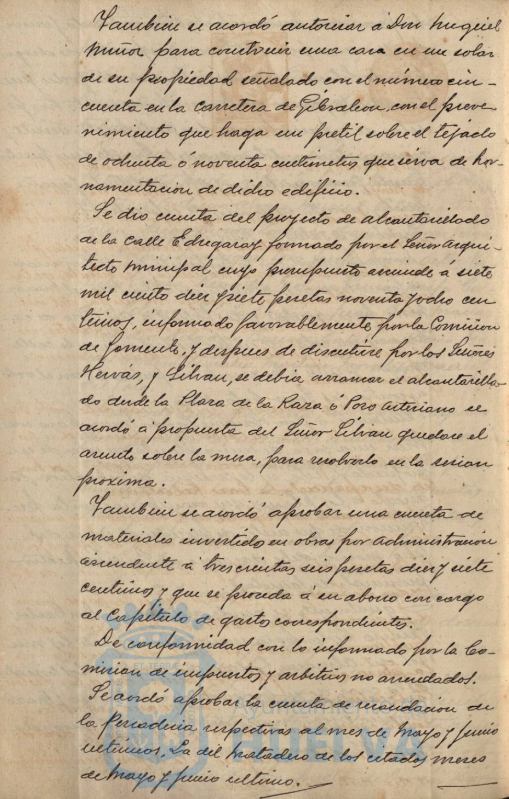 Tambien se acordó autorizar á Don Miguel
Muñoz para construir una casa en un solar
de su propiedad señalado con el número cin-
cuenta en la Carretera de Gibraleon, con el preve-
nimiento que haga un pretil sobre el tejado
de ochenta ó noventa centimetros que sirva de hor-
namentacion de dicho edificio.
Se dio cuenta del proyecto de alcantarillado
de la Calle Echegaray formado por el Señor Arqui-
tecto Minipal cuyo presupuesto asciende á siete
mil ciento diez y siete pesetas noventa y ocho cen-
timos, informado favorablemente por la Comision
de Fomento, y despues de discutirse por los Señores
Hervas, y Gilvan, se debia arrancar el alcantarilla-
do desde la Plaza de la Raza ó Pozo Artesiano se
acordó á propuesta del Señor Gilvan quedase el
asunto sobre la mesa, para resolverlo en la sesion
proxima.
Tambien se acordó aprobar una cuenta de
materiales invertidos en obras por administracion
ascendente á trescientas seis pesetas diez y siete
centimos y que se proceda á su abono con cargo
al Capitulo de gastos correspondientes.
De conformidad con lo informado por la Co-
mision de impuestos y arbitrios no arrendados.
Se acordó aprobar la cuenta de recaudacion de
la Pescaderia respectivas al mes de Mayo y Junio
ultimos. La del Matadero de los citados meses
de Mayo y Junio ultimo.
HUELVA